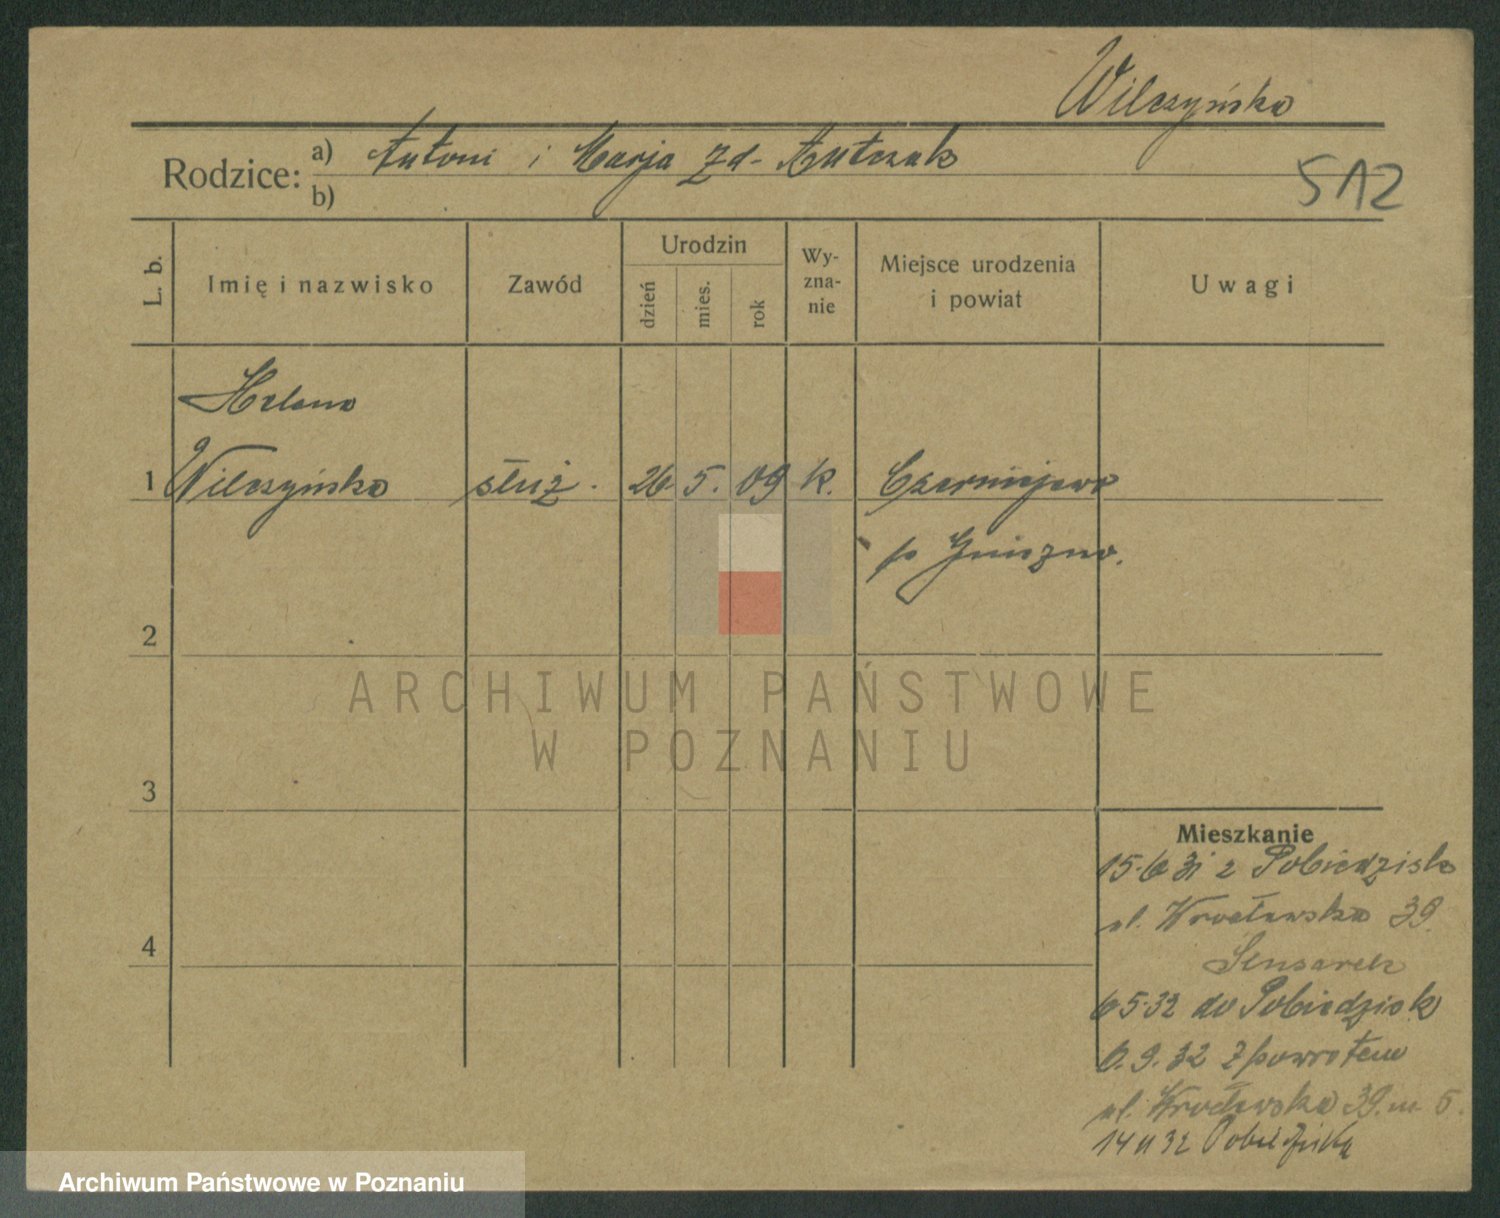 Wilczyńska
Rodzice: a) Antoni i Marja zd. Antczak
b)
512
L. b.
Imię i nazwisko
Zawód
Urodzin
dzień
mies.
rok
Wy-
zna-
nie
Miejsce urodzenia
i powiat
Uwagi
Helena
1 Wilczyńska służ. 26 5. 09 k. Czerniejewo
p Gniezno.
2
ARCHIWUM PAŃSTWOWE
W POZNANIU
3
4
Mieszkanie
15.6 31 z Pobiedzisk
ul. Wrocławska 39.
6 5 32 do Pobiedzisk
6. 9. 32 z powrotem
ul. Wrocławska 39. m 5.
14 11 32 Pobiedziska
Archiwum Państwowe w Poznaniu